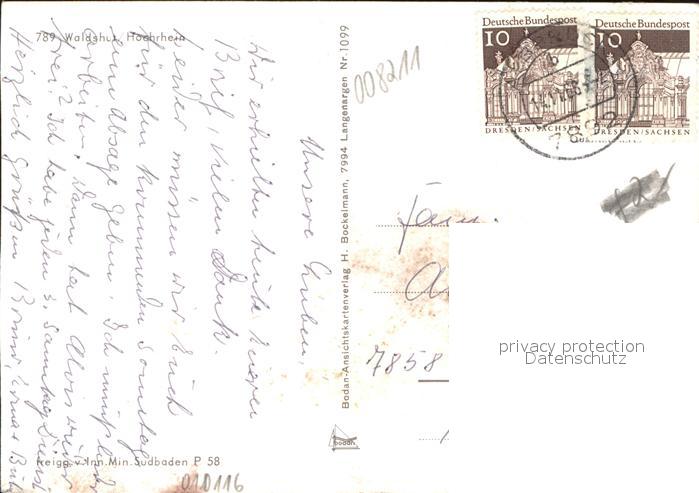 789 Waldshut, Hochrhein
Unsere Lieben,
Wir erhielten heute Eueren
Brief, vielen Dank.
Leider müssen wir Euch
für den kommenden Sonntag
eine Absage geben. Ich muß
arbeiten, dann hat Alois
frei? Ich habe jeden 3. Samstag Dienst
Herzlich Grüßen
Freigg.v.Inn.Min.Südbaden P 58
010116
Bodan-Ansichtskartenverlag H. Bockelmann, 7994 Langenargen Nr.1099
bodan
008211
Deutsche Bundespost
10
DRESDEN/SACHSEN
Deutsche Bundespost
10
DRESDEN/SACHSEN
Fam.
7858
privacy protection
Datenschutz